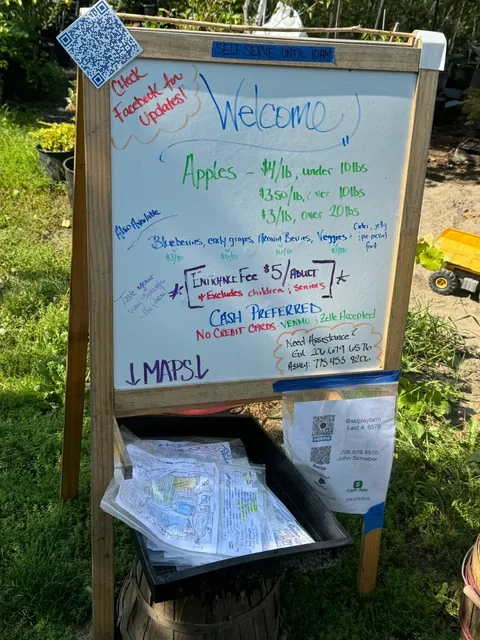 SELF SERVE UNTIL 10AM
Check
Facebook for
Updates!
Welcome
Apples - $4/lb, under 10lbs
$3.50/lb, over 10lbs
$3/lb, over 20lbs
Also Available
Blueberries, early grapes, Berries, Veggies
Cider, jelly
pre picked
fruit
ENTRANCE FEE $5/ADULT
* Excludes children & Seniors
CASH PREFERRED
NO CREDIT CARDS VENMO & Zelle Accepted
Need Assistance?
Call 206 679 6576
ASHLY: 775 453 8206
↓MAPS↓
@skipleyfarm
Last 4: 6576
206.679.6576
John Schieber
Cash App